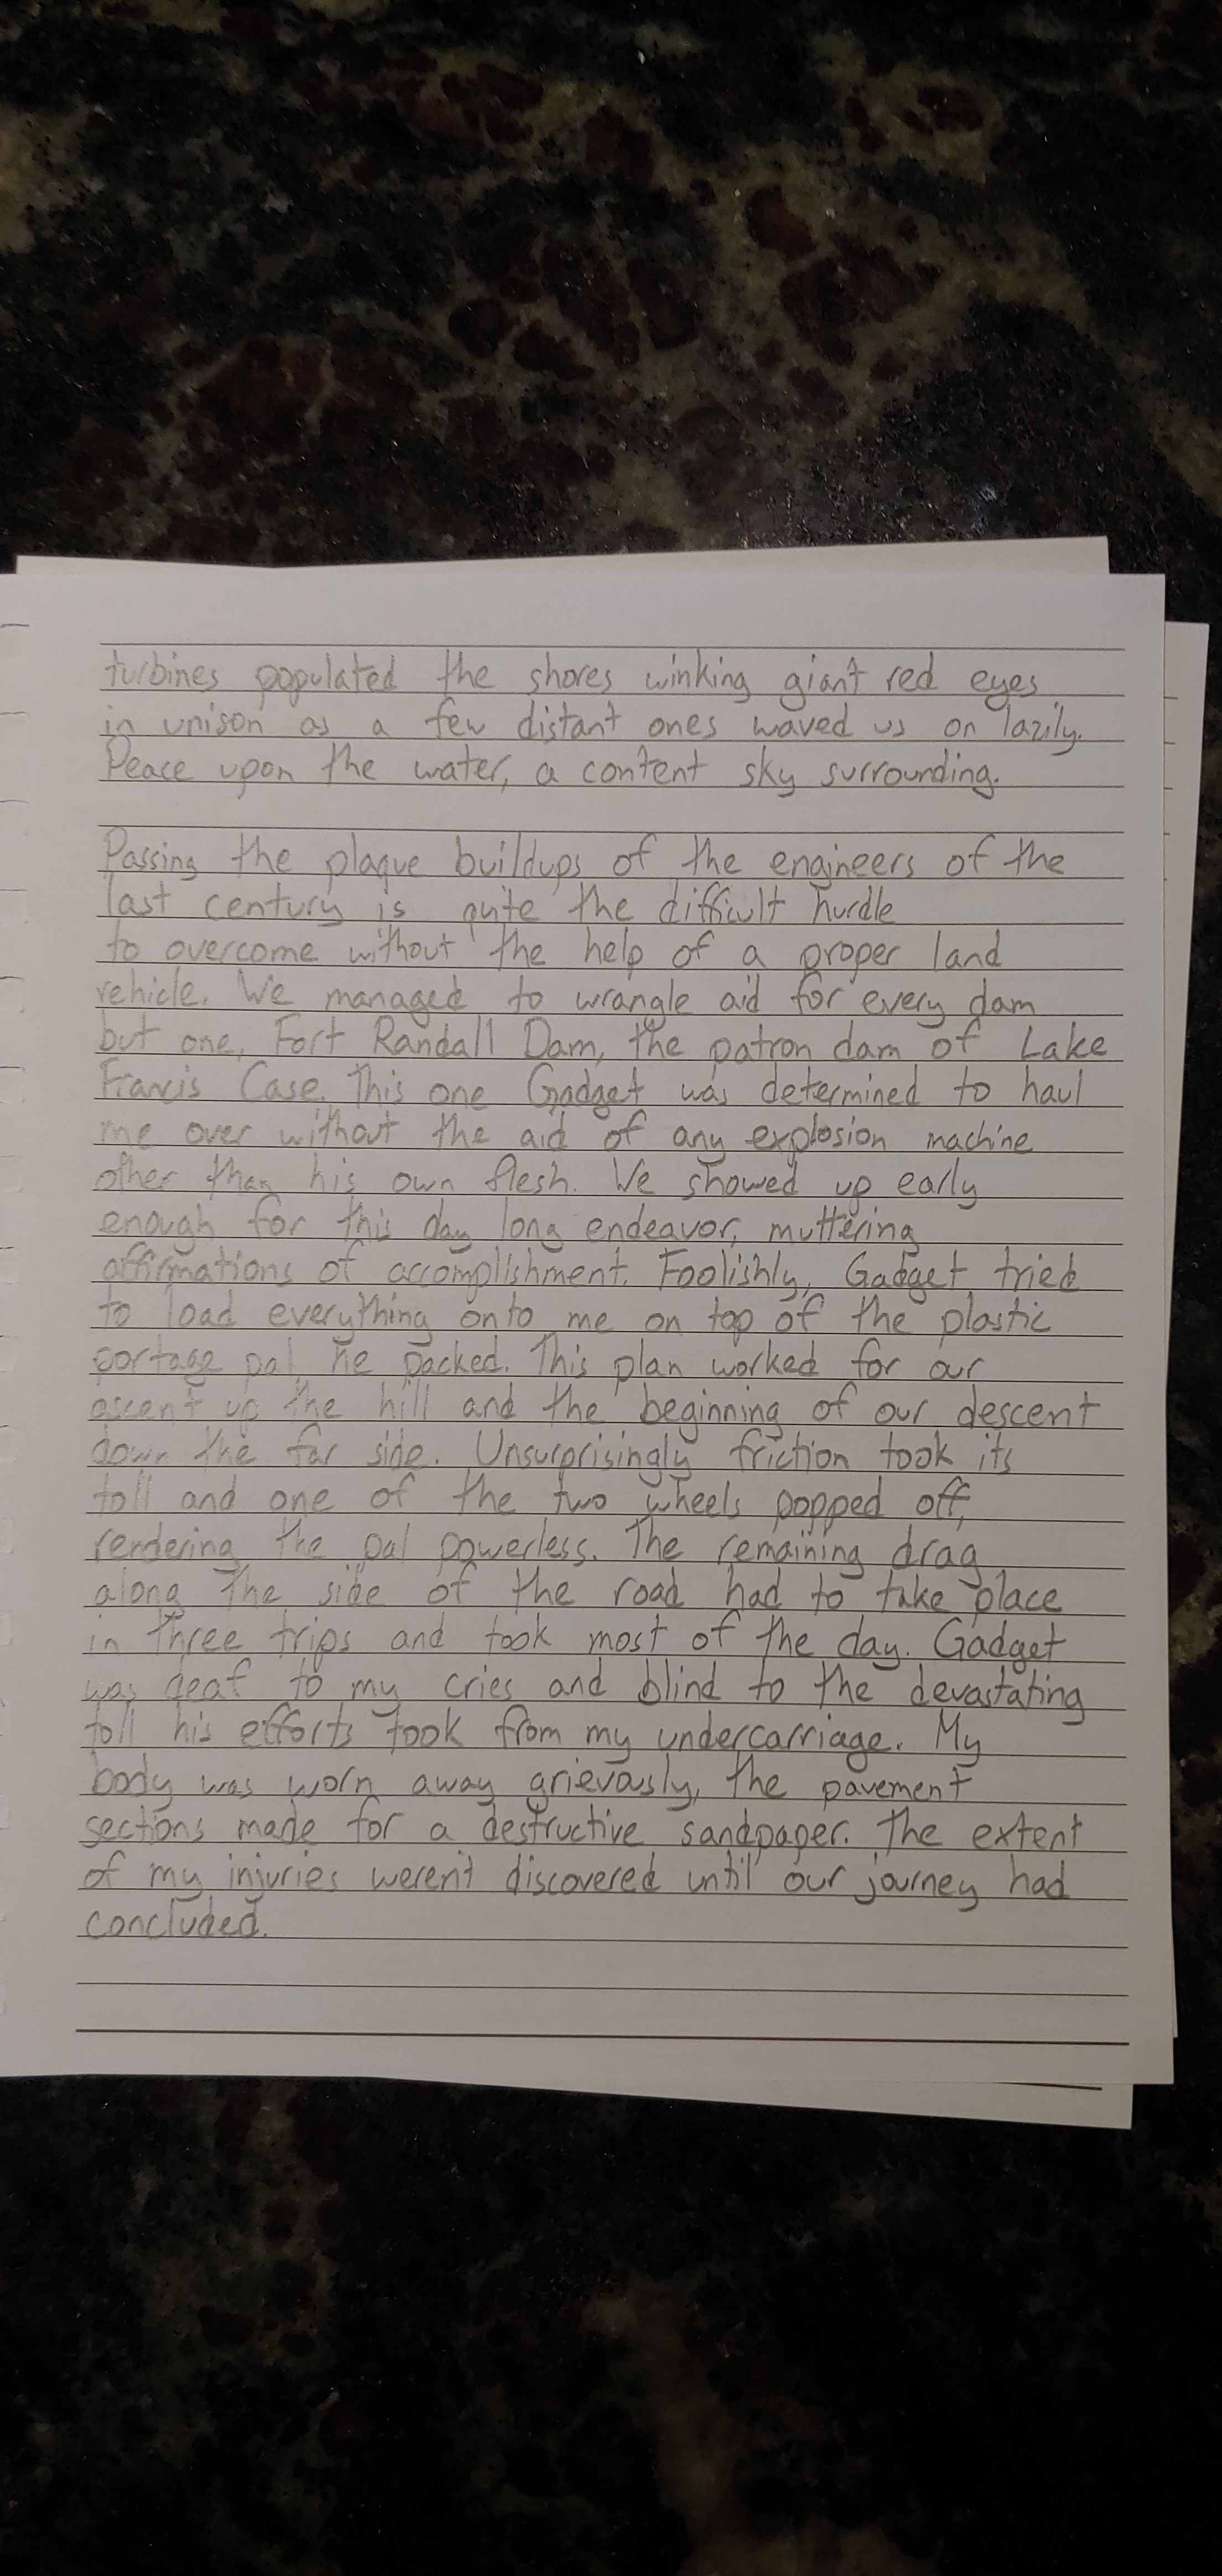 turbines populated the shores winking giant red eyes
in unison as a few distant ones waved us on lazily.
Peace upon the water, a content sky surrounding.
Passing the plaque buildups of the engineers of the
last century is quite the difficult hurdle
to overcome without the help of a proper land
vehicle. We managed to wrangle aid for every dam
but one, Fort Randall Dam, the patron dam of Lake
Francis Case. This one Gadget was determined to haul
me over without the aid of any explosion machine
other than his own flesh. We showed up early
enough for this day long endeavor, muttering
affirmations of accomplishment. Foolishly, Gadget tried
to load everything onto me on top of the plastic
portage pal he packed. This plan worked for our
ascent up the hill and the beginning of our descent
down the far side. Unsurprisingly friction took its
toll and one of the two wheels popped off,
rendering the pal powerless. The remaining drag
along the side of the road had to take place
in three trips and took most of the day. Gadget
was deaf to my cries and blind to the devastating
toll his efforts took from my undercarriage. My
body was worn away grievously, the pavement
sections made for a destructive sandpaper. The extent
of my injuries weren't discovered until our journey had
concluded.